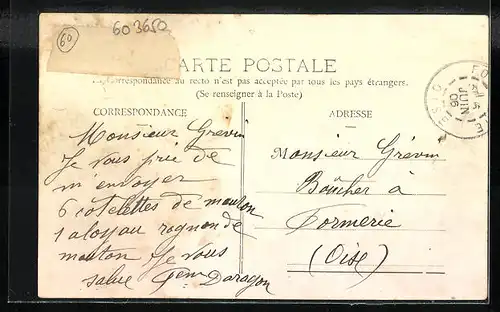 60
603650
CARTE POSTALE
Correspondance au recto n'est pas acceptée par tous les pays étrangers.
(Se renseigner à la Poste)
CORRESPONDANCE
Monsieur Grévin
Je vous prie de
m'envoyer
6 cotelettes de mouton
1 aloyau rognon de
mouton Je vous
salue Daragon
ADRESSE
Monsieur Grévin
Boûcher à
Formerie
(Oise)
JUIN
06
OISE